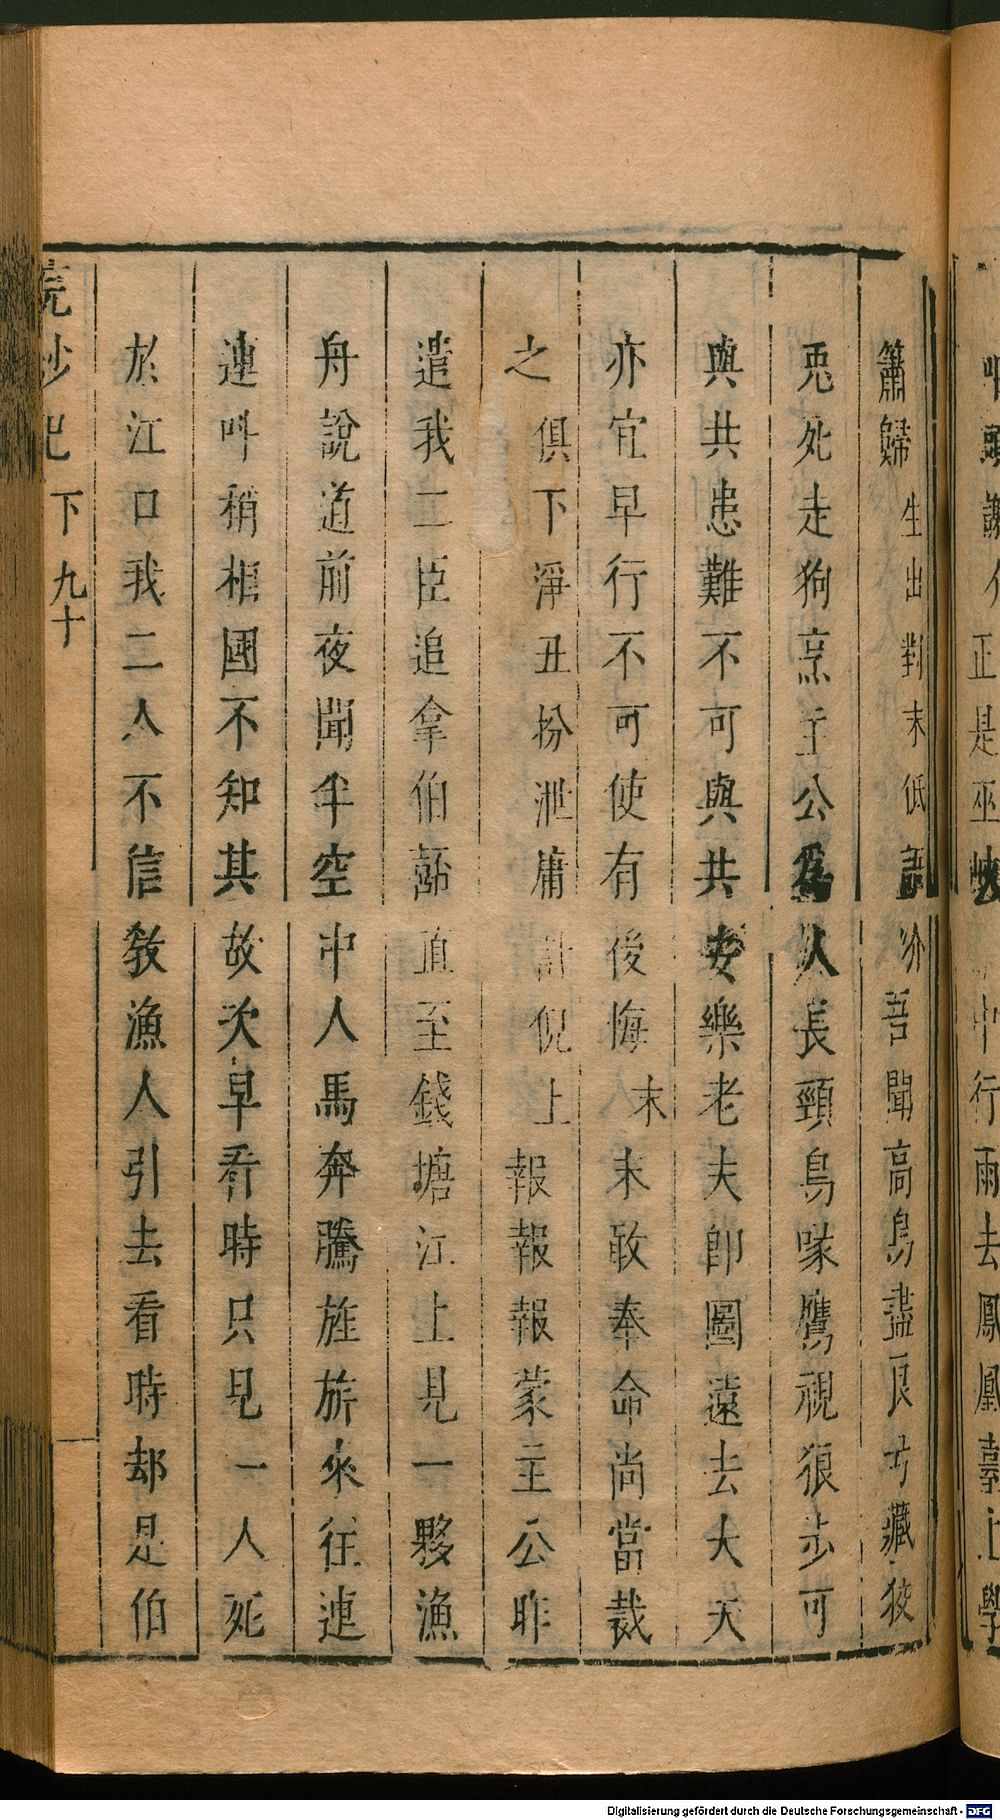 簫歸生出對末低語介吾聞高鳥盡良弓藏狡
兎死走狗烹主公爲人長頸鳥喙鷹視狼步可
與共患難不可與共安樂老夫卽圖遠去大夫
亦宜早行不可使有後悔末末敢奉命尚當裁
之俱下淨丑扮泄庸計倪上報報報蒙主公昨
遣我二臣追拿伯嚭直至錢塘江上見一夥漁
舟說道前夜聞半空中人馬奔騰旌旂來徃連
連叫稍相國不知其故次早看時只見一人死
於江口我二人不信敎漁人引去看時却是伯
浣紗記下九十
正是巫峽
中行雨去鳳凰臺上學
Digitalisierung gefördert durch die Deutsche Forschungsgemeinschaft - DFG